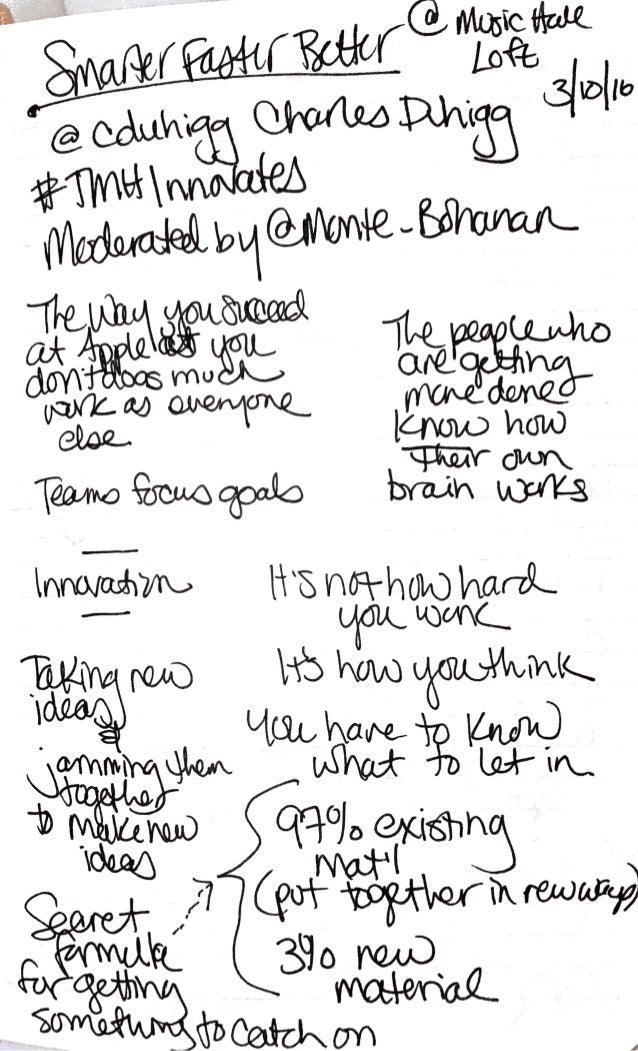 Smarter Faster Better @ Music Hall
Loft
3/10/16
@cduhigg Charles Duhigg
#TMHInnovates
Moderated by @Monte_Bohanan
The way you succeed
at Apple is you
don't do as much
work as everyone
else.
Teams focus goals
The people who
are getting
more done
know how
their own
brain works
Innovation
It's not how hard
you work
It's how you think
You have to know
what to let in.
Taking new
ideas
&
jamming them
together
to make new
ideas
97% existing
mat'l
(put together in new ways)
3% new
material
Secret
formula
for getting
something to catch on